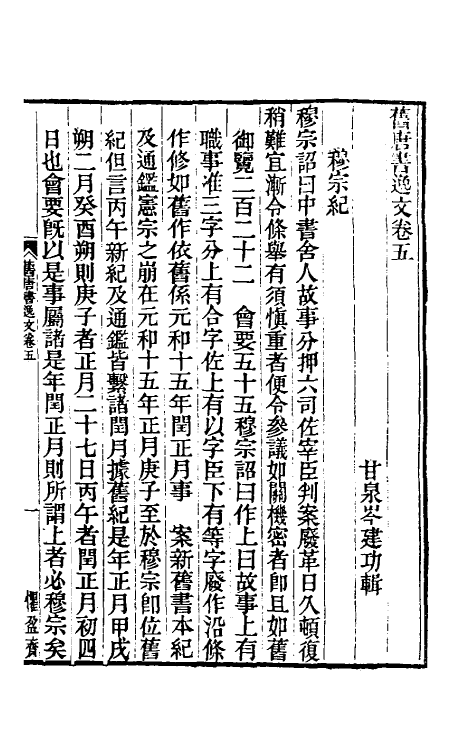 舊唐書逸文卷五
甘泉岑建功輯
穆宗紀
穆宗詔曰中書舍人故事分押六司佐宰臣判案廢革日久頓復
稍難宜漸令條舉有須慎重者便令參議如關機密者卽且如舊
御覽二百二十二　會要五十五穆宗詔曰作上曰故事上有
職事准三字分上有合字佐上有以字臣下有等字廢作沿條
作修如舊作依舊係元和十五年閏正月事　案新舊書本紀
及通鑑憲宗之崩在元和十五年正月庚子至於穆宗卽位舊
紀但言丙午新紀及通鑑皆繫諸閏月據舊紀是年正月甲戌
朔二月癸酉朔則庚子者正月二十七日丙午者閏正月初四
日也會要旣以是事屬諸是年閏正月則所謂上者必穆宗矣
舊唐書逸文卷五
一
懼盈齋